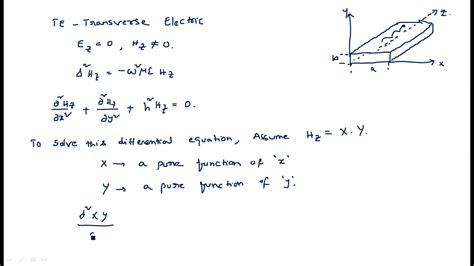 TE - Transverse Electric
E_z = 0, H_z ≠ 0.
∇² H_z = -ω²με H_z
∂²H_z/∂x² + ∂²H_z/∂y² + h² H_z = 0.
To solve this differential equation, Assume H_z = X.Y.
X → a pure function of 'x'
Y → a pure function of 'y'.
∂² X Y
y
z
b
a
x